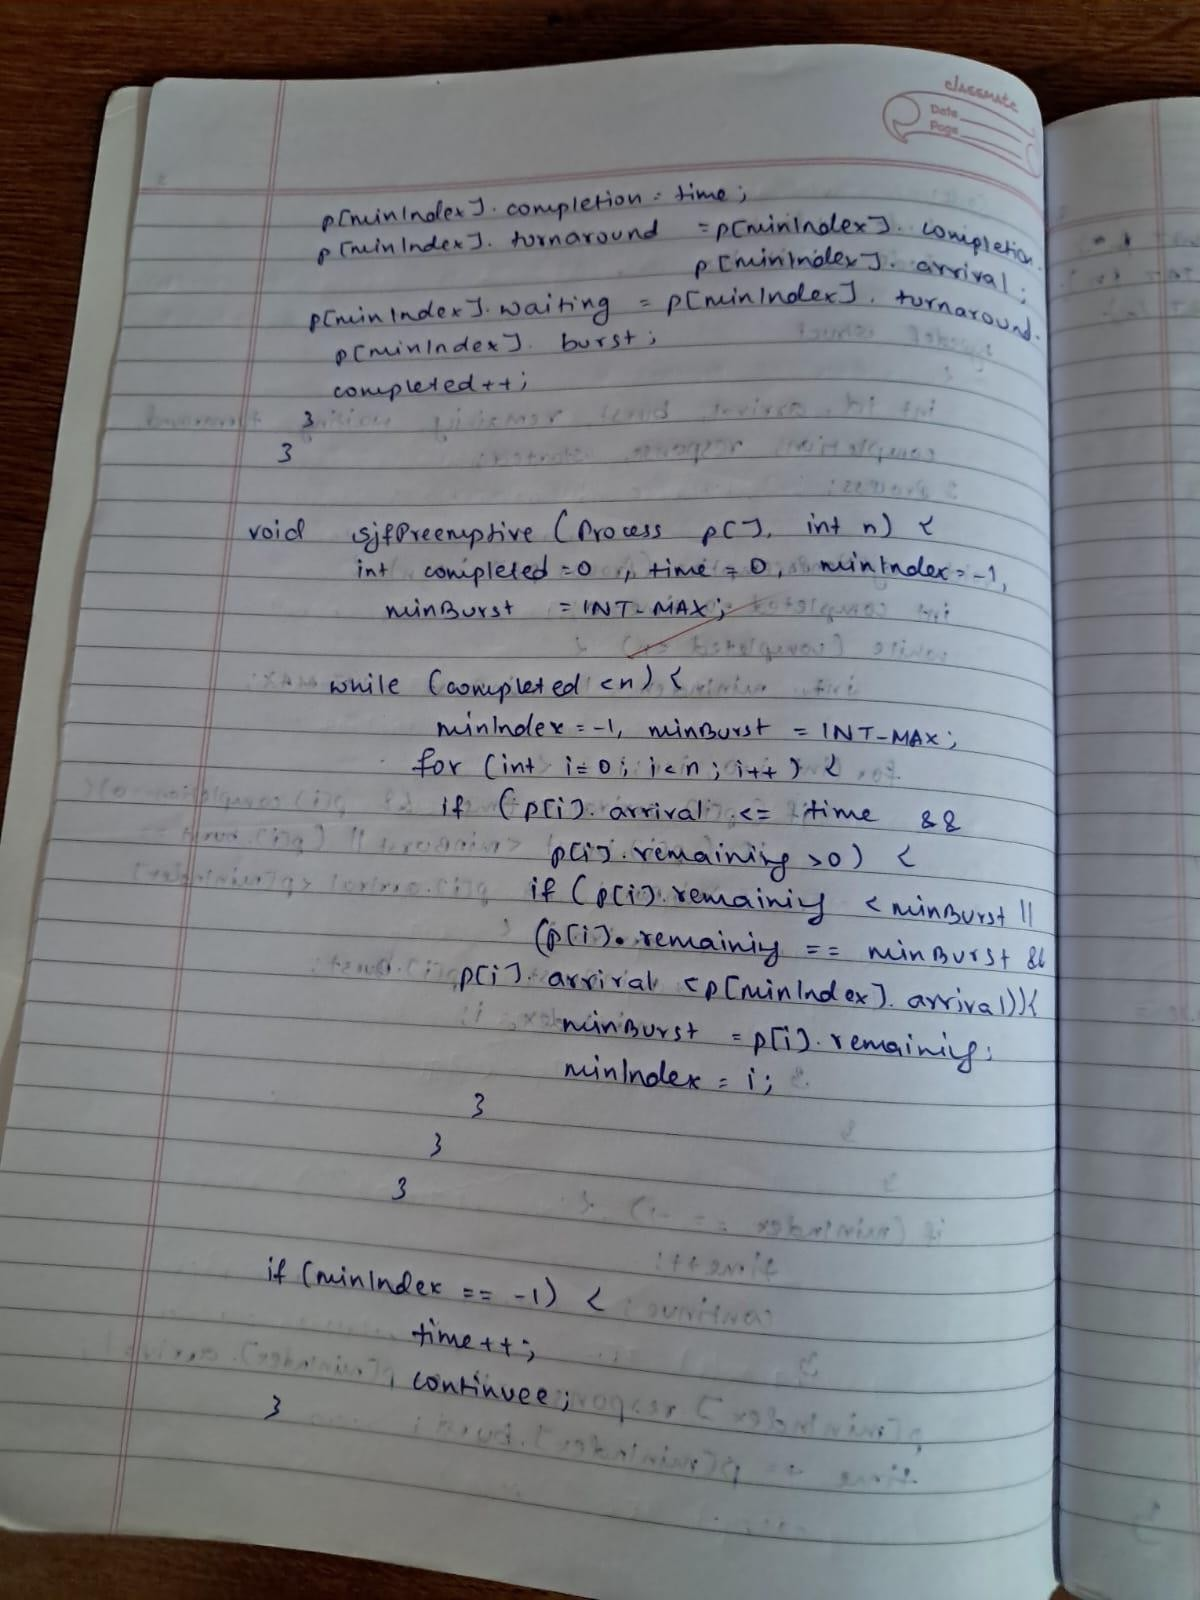 classmate
Date
Page
p[minIndex]. completion = time;
p[minIndex]. turnaround = p[minIndex]. completion -
p[minIndex]. arrival;
p[minIndex]. waiting = p[minIndex]. turnaround -
p[minIndex]. burst;
completed++;
}
}
void sjfPreemptive (Process p[], int n) {
int completed = 0, time = 0, minIndex = -1,
minBurst = INT_MAX;
while (completed < n) {
minIndex = -1, minBurst = INT_MAX;
for (int i = 0; i < n; i++) {
if (p[i]. arrival <= time &&
p[i]. remaining > 0) {
if (p[i]. remainiy < minBurst ||
(p[i]. remainiy == minBurst &&
p[i]. arrival < p[minIndex]. arrival)) {
minBurst = p[i]. remainiy;
minIndex = i;
}
}
}
if (minIndex == -1) {
time++;
continuee;
}